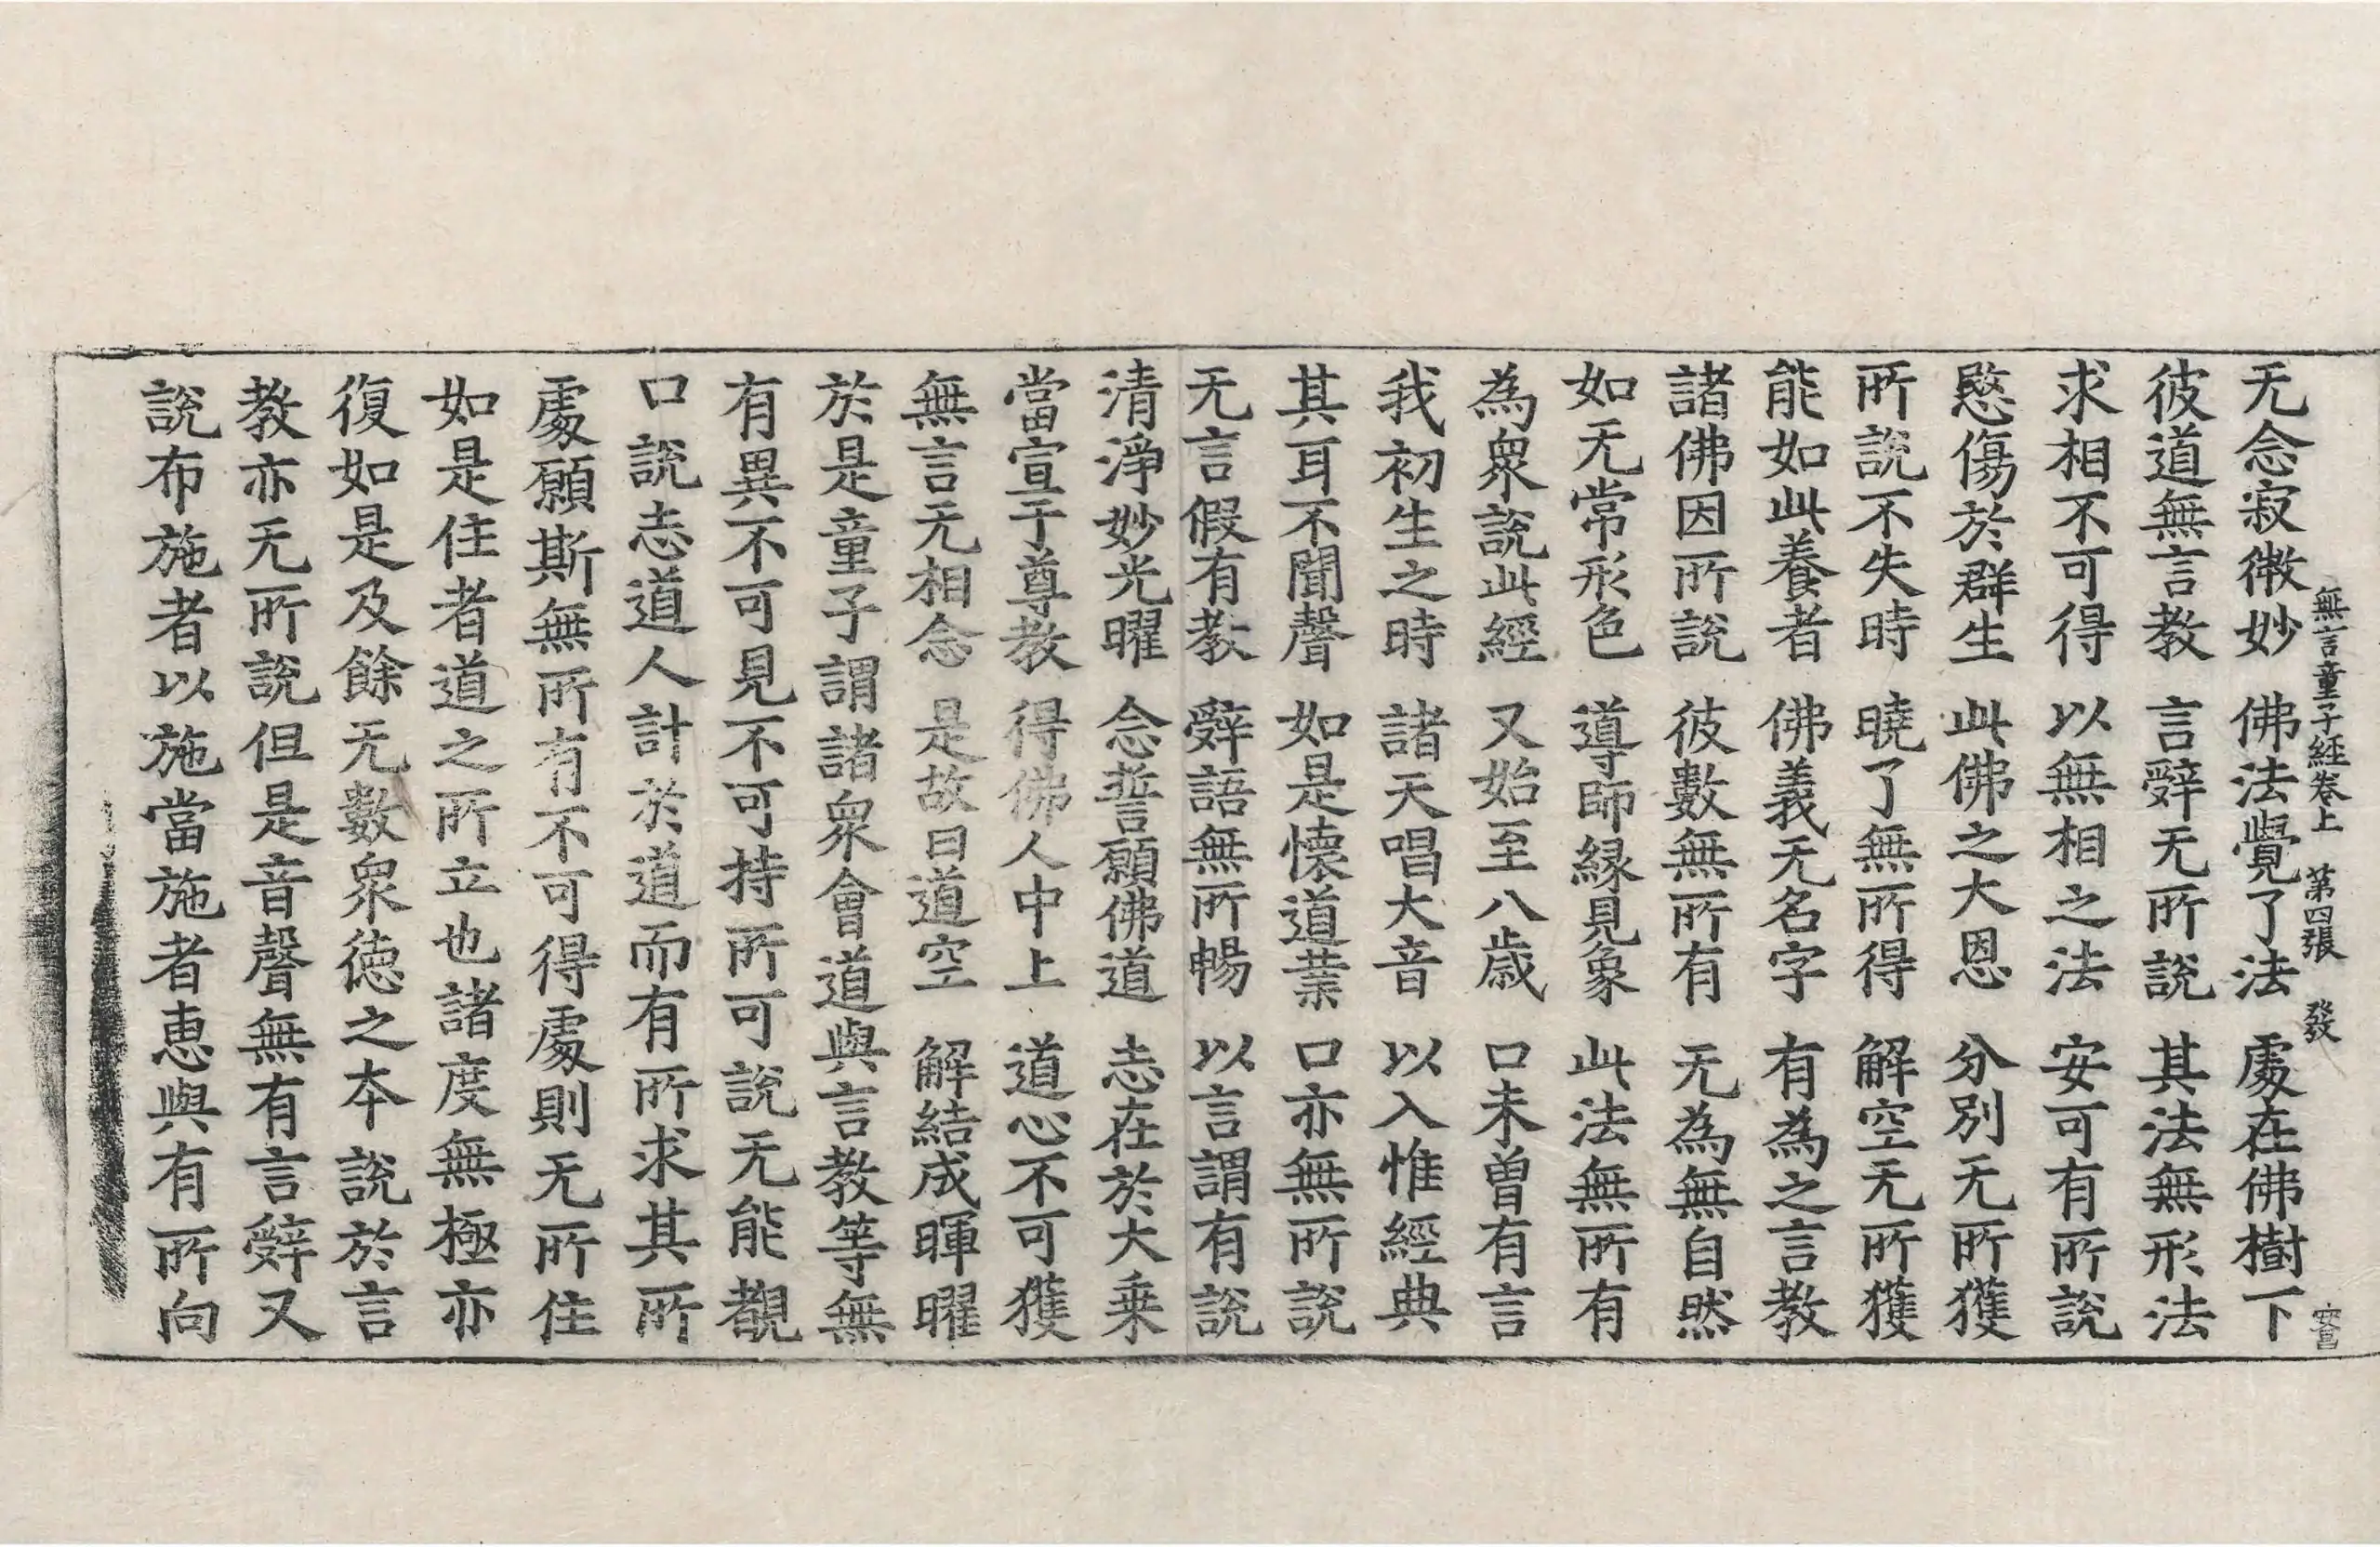 無言童子經卷上 第四張 發
无念寂微妙 佛法覺了法 處在佛樹下
彼道無言教 言辭无所說 其法無形法
求相不可得 以無相之法 安可有所說
愍傷於群生 此佛之大恩 分別无所獲
所說不失時 曉了無所得 解空无所獲
能如此養者 佛義无名字 有為之言教
諸佛因所說 彼數無所有 无為無自然
如无常形色 導師緣見象 此法無所有
為眾說此經 又始至八歲 口未曾有言
我初生之時 諸天唱大音 以入惟經典
其耳不聞聲 如是懷道業 口亦無所說
无言假有教 辭語無所暢 以言謂有說
清淨妙光曜 念誓願佛道 志在於大乗
當宣于尊教 得佛人中上 道心不可獲
無言无相念 是故曰道空 解結成暉曜
於是童子謂諸眾會道與言教等無
有異不可見不可持所可說无能覩
口說志道人計於道而有所求其所
處願斯無所有不可得處則无所住
如是住者道之所立也諸度無極亦
復如是及餘无數眾德之本說於言
教亦无所說但是音聲無有言辭又
說布施者以施當施者惠與有所向